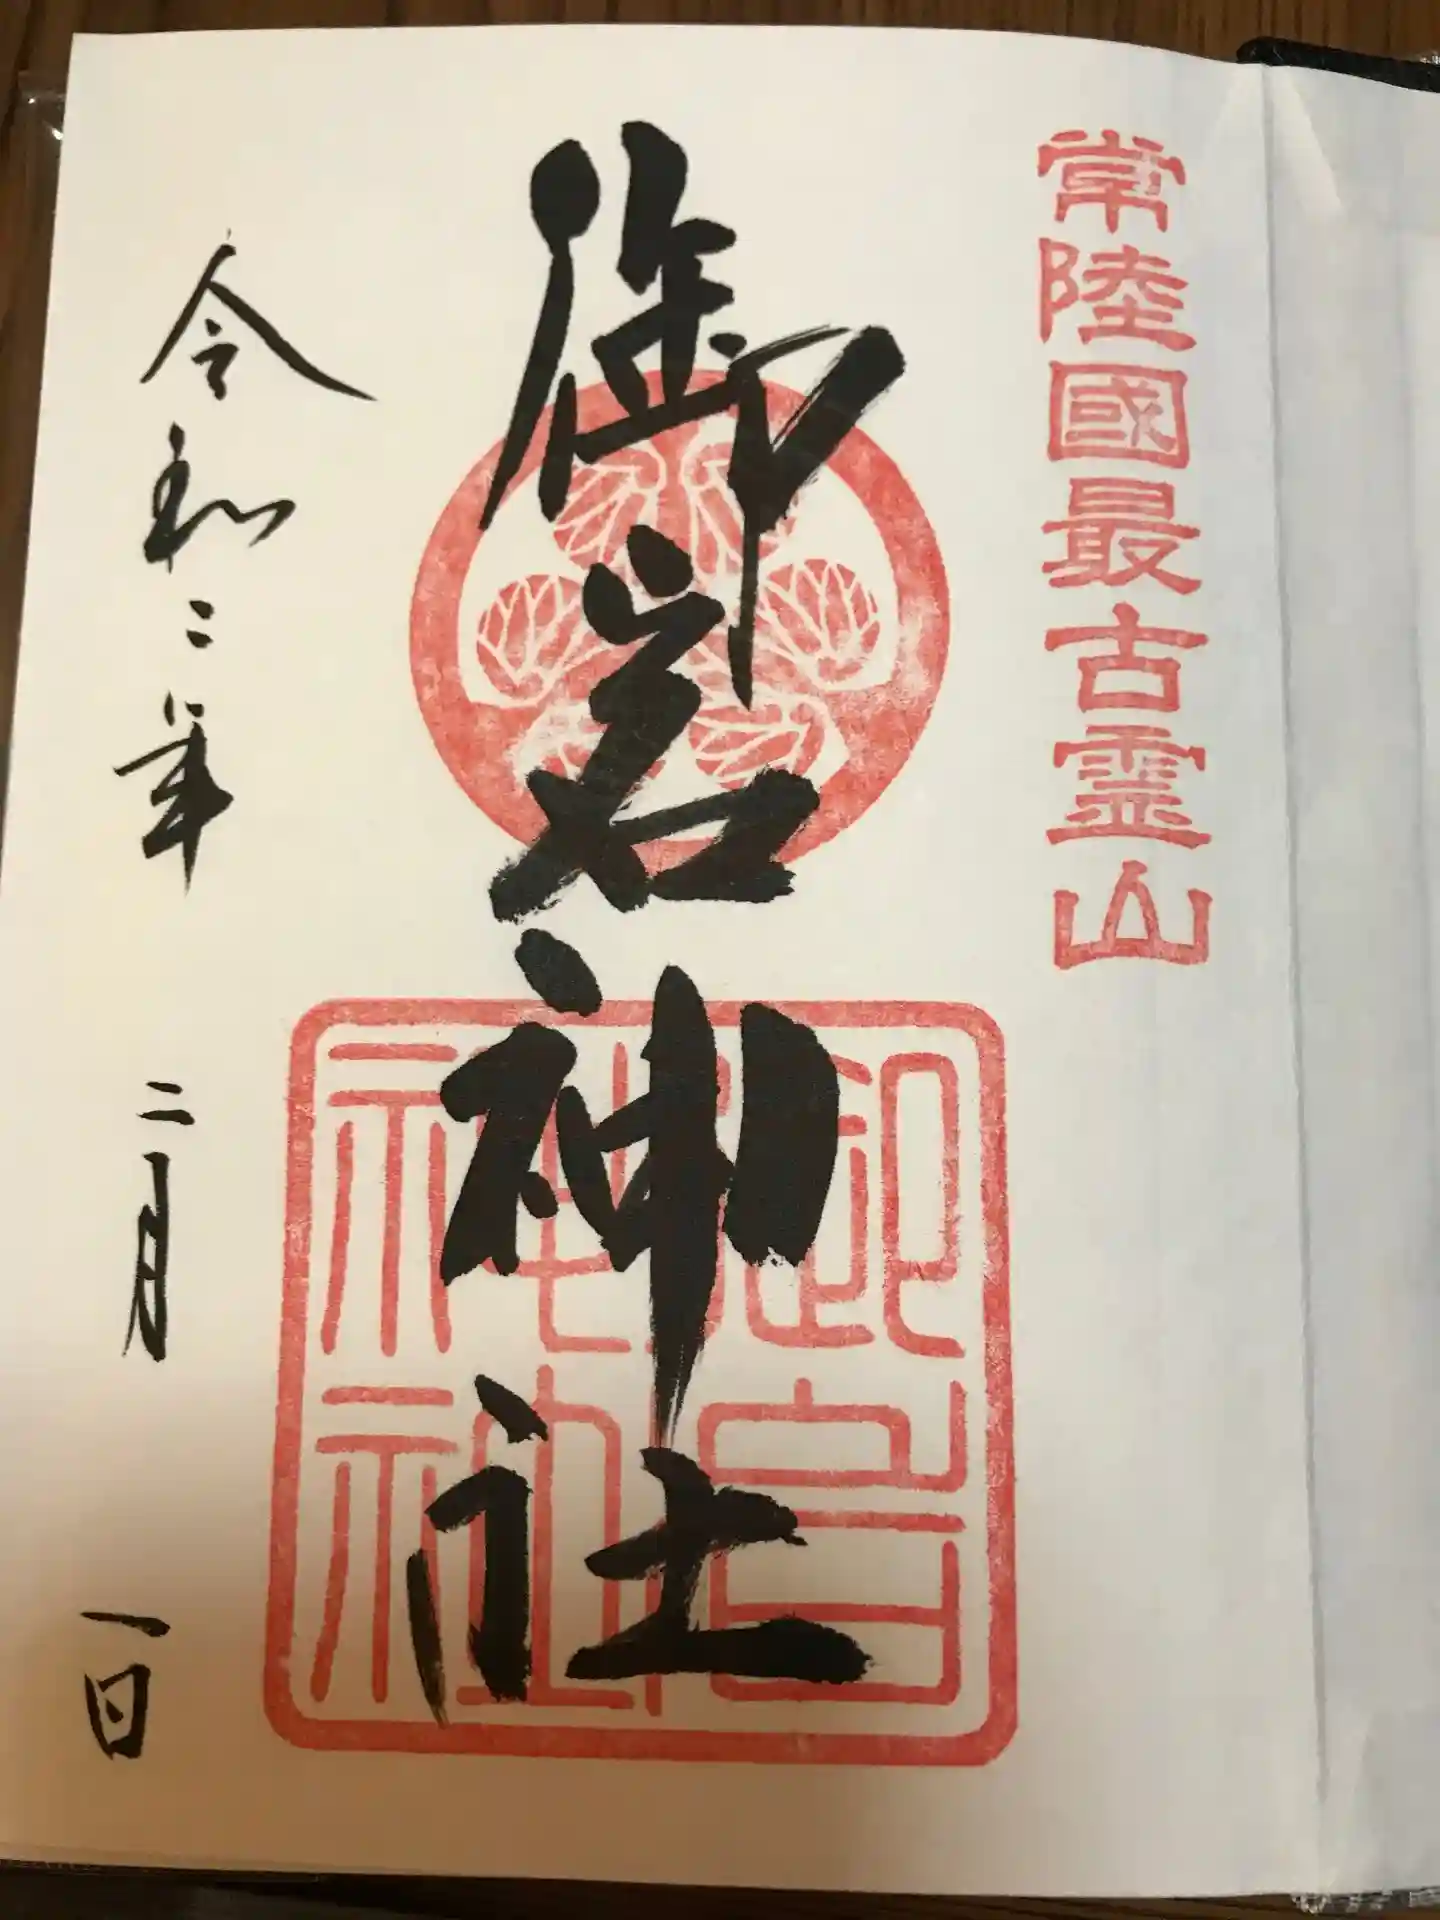 常陸國最古霊山
御岩神社
令和二年 二月 一日